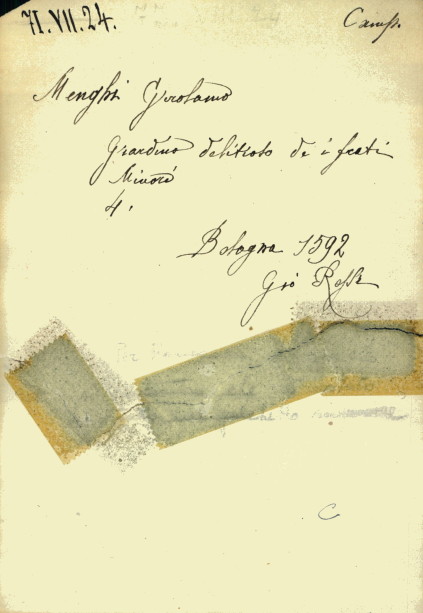 71.VII.24.
Camp.
Menghi Girolamo
Giardino delitioso de i frati
Minori
4.
Bologna 1592
Gio Rossi
C